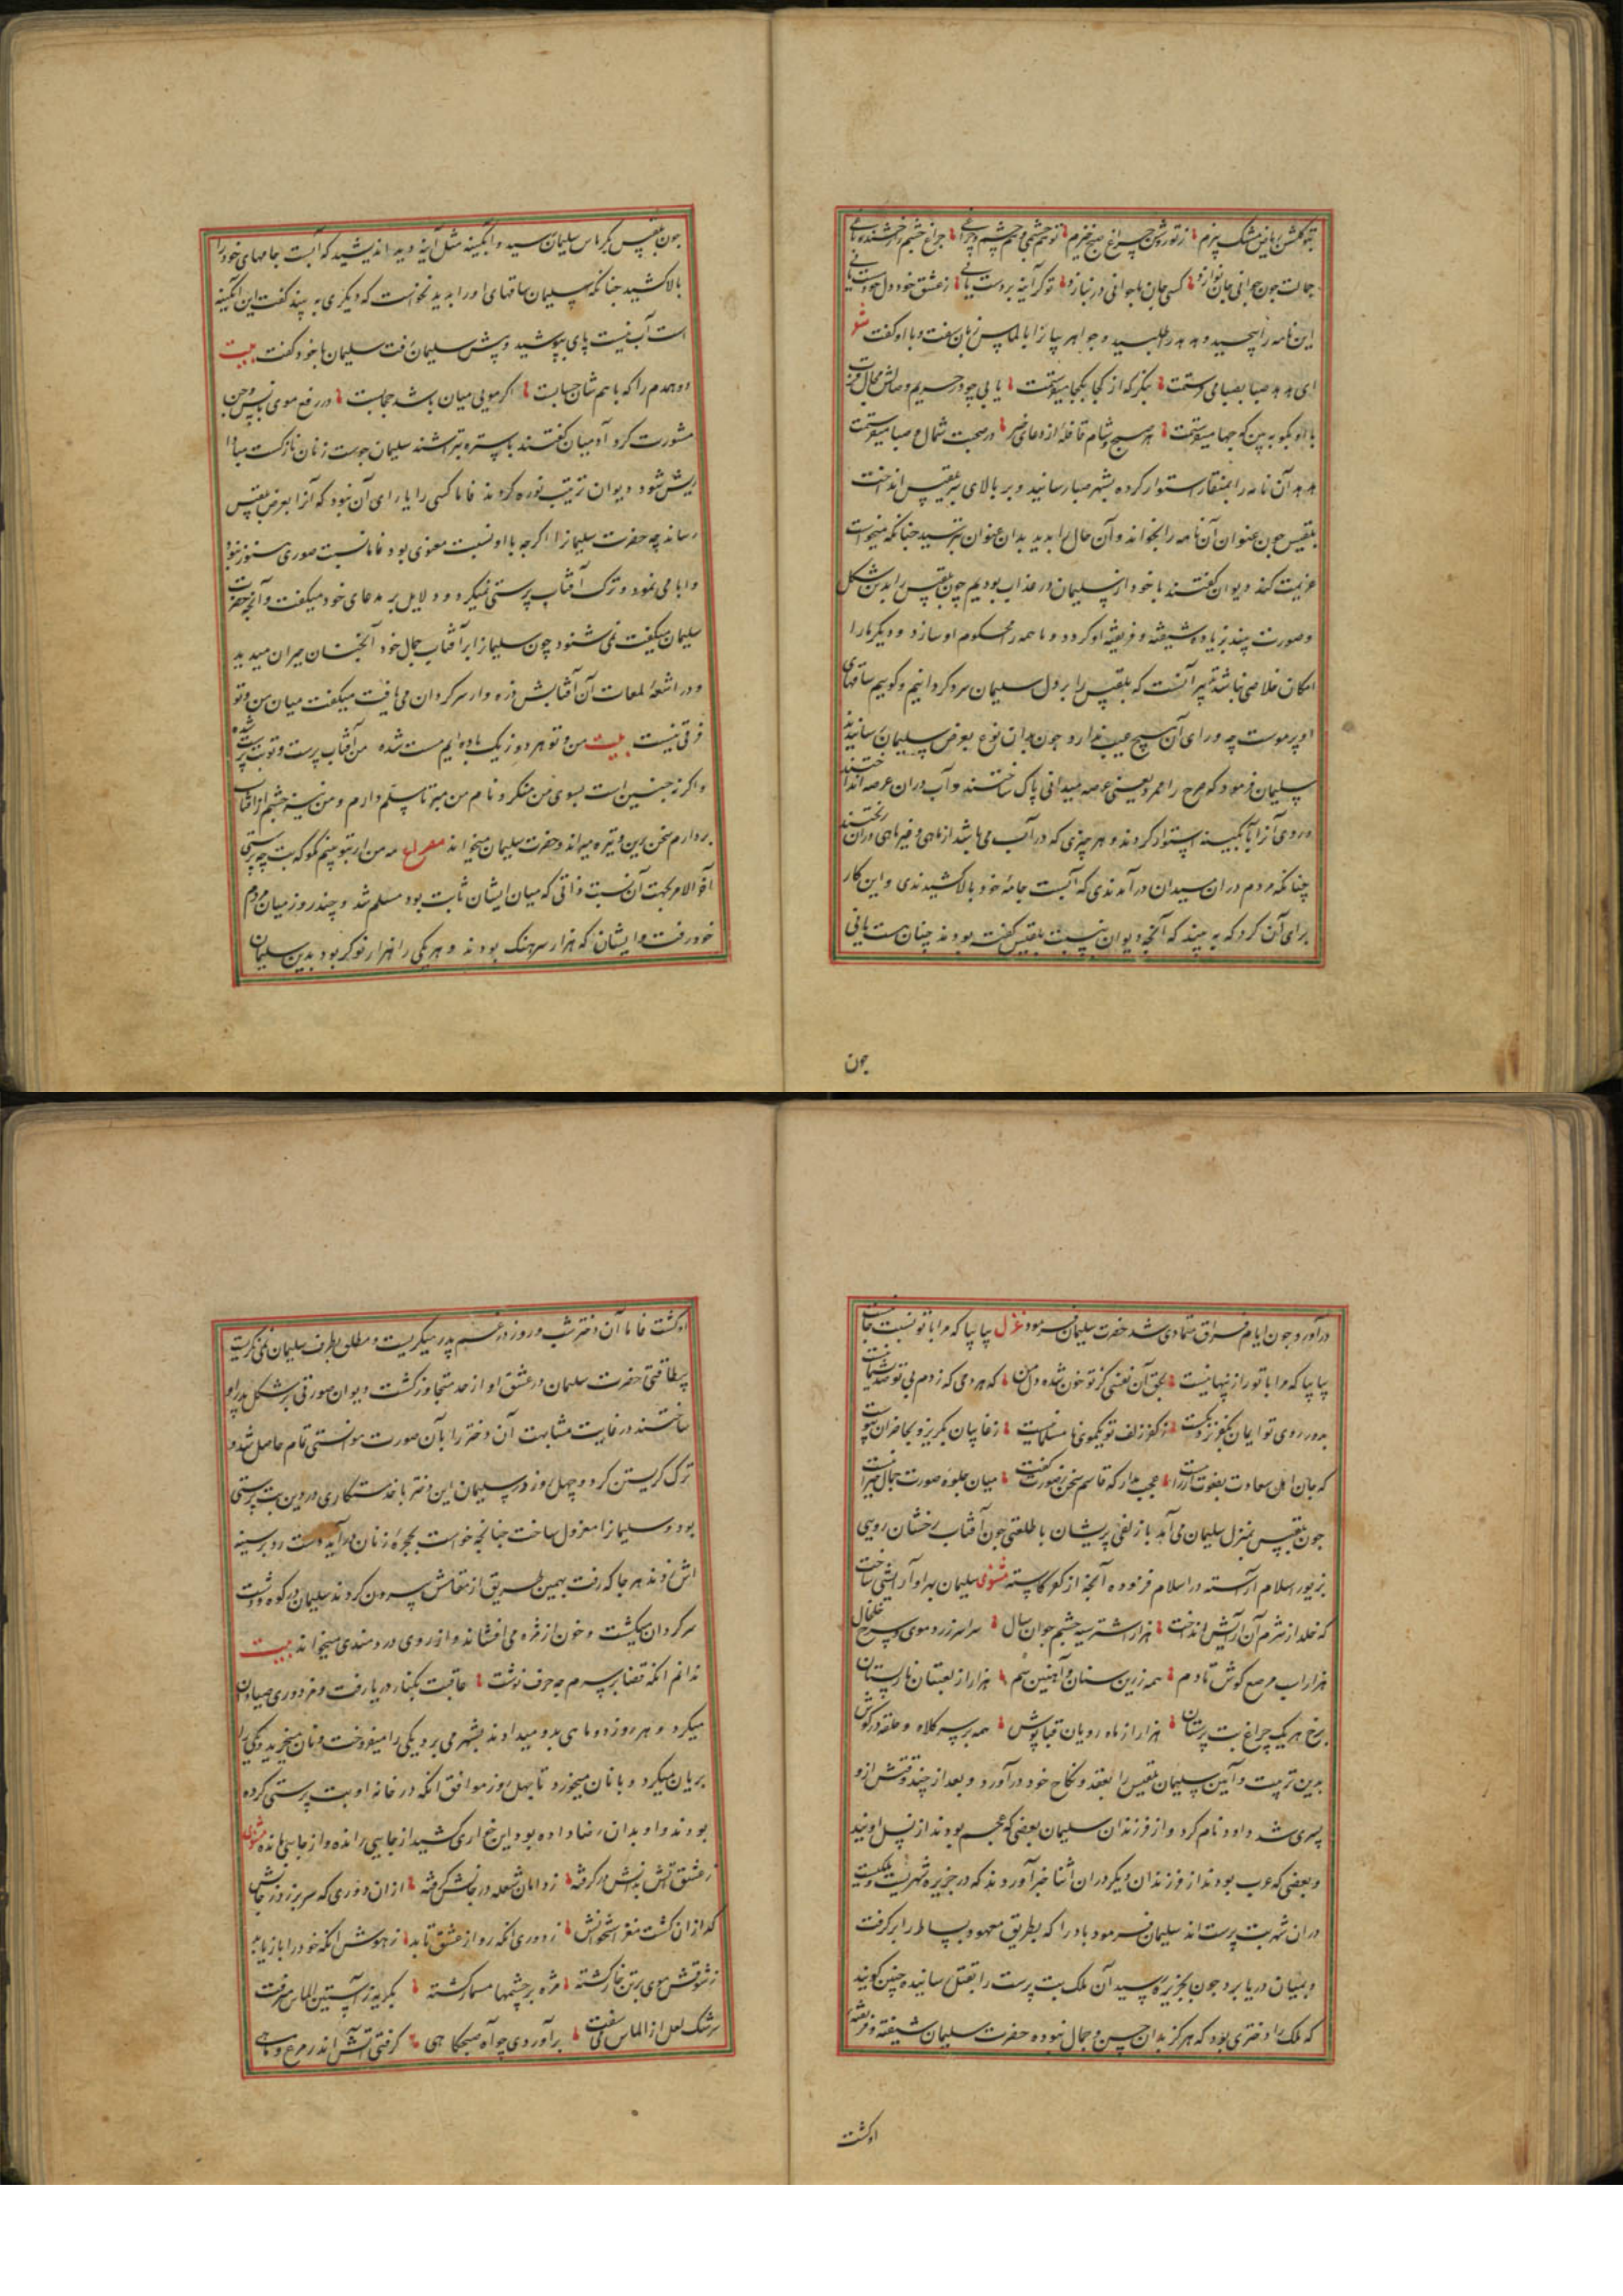 این نامه را پیچید و هدهد را طلبید و جواهر بیانرا بالماس زبان سفت و با او گفت شعر
ای هدهد صبا بصبا می فرستمت بنگر که از کجا بکجا میفرستمت
هر صبح و شام قافلهٔ از دعای خیر در صحبت شمال و صبا میفرستمت
هدهد آن نامه را بمنقار استوار کرده بشهر صبا رسانید و بر بالای سر بلقیس انداخت
بلقیس چون عنوان آن نامه را بخواند و آن حال را بدید بدان عنوان بترسید چنانکه میخواست
عزیمت کند دیوان گفتند با خود از سلیمان در عذاب بودیم چون بلقیس را بدین شکل
و صورت بیند زیاده شیفته و فریفته او کردد و ما همه را محکوم او سازد و دیگر ما را
امکان خلاصی نباشد تدبیر آنست که بلقیس را بر دل سلیمان سرد کردانیم و کوییم ساقهای
او پر موست چه ورای آن هیچ عیب ندارد چون بدان نوع بعرض سلیمان رسانیدند
سلیمان فرمود که صرح را ممرد یعنی عرصه میدانی پاک ساختند و آب دران عرصه انداختند
و روی آنرا بآبگینه استوار کردند و هر چیزی که در آب می باشد از ماهی و غیر ماهی دران ریختند
چنانکه مردم دران میدان در آمدندی که آبست جامهٔ خود بالا کشیدندی و این کار
برای آن کرد که به بیند که آنچه دیوان بنسبت بلقیس گفته بودند چنان هست یا نی
چون
چون بلقیس سلیمان رسید و ابگینه مثل آینه دید اندیشید که آبست جامهای خود را
بالا کشید چنانکه سلیمان ساقهای او را بدید نخواست که دیگری به بیند گفت این ابگینه
است آب نیست پای بپوشید و پیش سلیمان رفت سلیمان با خود گفت بیت
دو همدم را که با هم شان حسابست اگر مویی میان باشد حجابست در رفع موی بلقیس و جن
مشورت کرد آدمیان گفتند باستره بتراشند سلیمان جوست زنان نازکست مبادا
ریش شود دیوان ترتیب نوره کردند فاما کسی را یارای آن نبود که آنرا بعرض بلقیس
رساند چه حضرت سلیمانرا اگرچه با او نسبت معنوی بود فاما نسبت صوری هنوز نبود
و ابا می نمود و ترک آفتاب پرستی نمیکرد و دلایل بر مدعای خود میگفت و آنچه حضرت
سلیمان میگفت نمی شنود چون سلیمانرا بر آفتاب جمال خود آنچنان حیران میدید
و در اشعهٔ لمعات آن آفتابش ذره وار سرکردان می یافت میگفت میان من و تو
فرقی نیست بیت من و تو هر دو ز یک باده ایم مست شده من آفتاب پرست و تو بت پرست شده
خود رفت و ایشان که هزار سرهنگ بودند و هر یکی را هزار نوکر بود بدین سلیمان
در آورد و چون ایام فراق متمادی شد حضرت سلیمان فرمود غزل بیا بیا که مرا با تو نسبت جانیست
بیا بیا که مرا با تو راز پنهانیست بحق آن نفسی کز تو خون شده دل من که هر دمی که زدم بی تو صد پشیمانیست
چون بلقیس بمنزل سلیمان می آمد با زلفی پریشان با طلعتی چون آفتاب رخشان رویی
بزیور اسلام آراسته مثنوی سلیمان بهر او آرایشی ساخت
که خلد از شرم آن آرایش انداخت هزار اشتر سیه چشم جوان سال سراسر زرد موی و سرخ خلخال
هزار اسب مرصع کوش تا دم همه زرین ستام و آهنین سم هزار از لعبتان نار پستان
برخ هر یک چراغ بت پرستان هزار از ماه رویان قباپوش همه بر سر کلاه و حلقه در کوش
بدین تربیت و آیین سلیمان بلقیس را بعقد و نکاح خود در آورد و بعد از چند وقتش از و
پسری شد داود نام کرد و از فرزندان سلیمان بعضی که عجم بودند از نسل اویند
و بعضی که عرب بودند از فرزندان دیگر دران اثنا خبر آوردند که در جزیره شهریست و ملکیست
دران شهر بت پرست اند سلیمان فرمود باد را که بطریق معهود بساط را بر گرفت
و بمیان دریا برد چون بجزیره رسید آن ملک بت پرست را بقتل رسانید چنین گویند
که ملک را دختری بود که هرگز بدان حسن و جمال نبوده حضرت سلیمان شیفته و فریفته
او گشت
او گشت فاما آن دختر شب و روز در غم پدر میگریست و مطلق بطرف سلیمان نمی نگریست
بیطاقتی حضرت سلیمان در عشق او از حد متجاوز گشت دیوان صورتی بر شکل پدر او
ساختند در غایت مشابهت آن دختر را بآن صورت موانستی تمام حاصل شد و
ترک گریستن کرد و چهل روز در سلیمان این دختر با خدمتکاری در دین بت پرستی
بود و سلیمانرا معزول ساخت چنانچه خواست بحجرهٔ زنان در آید دست رد بر سینه
اش زدند هر جا که رفت بهمین طریق از مقامش بیرون کردند سلیمان در کوه و دشت
سرگردان میگشت و خون از مژه می افشاند و از روی دردمندی میخواند بیت
ندانم انکه قضا بر سرم چه حرف نوشت عاقبت بکنار دریا رفت و مزدوری صیادان
میکرد و هر روز دو ماهی بدو میدادند بشهر می برد یکی را میفروخت و نان میخرید و یکی را
بریان میکرد و با نان میخورد تا چهل روز موافق انکه در خانه او بت پرستی کرده
بودند و او بدان رضا داده بود این خواری کشید از جایی رانده و از جایی مانده مثنوی
ز عشق آتش بدانش در گرفته ز دامان شعله در جانش گرفته
ز شوقش موی بر تن خار گشته مژه بر چشمها مسمار گشته
سرشک لعل از الماس می سفت بر آوردی چو آه صبحگاهی گرفتی آتش اندر مرغ و ماهی